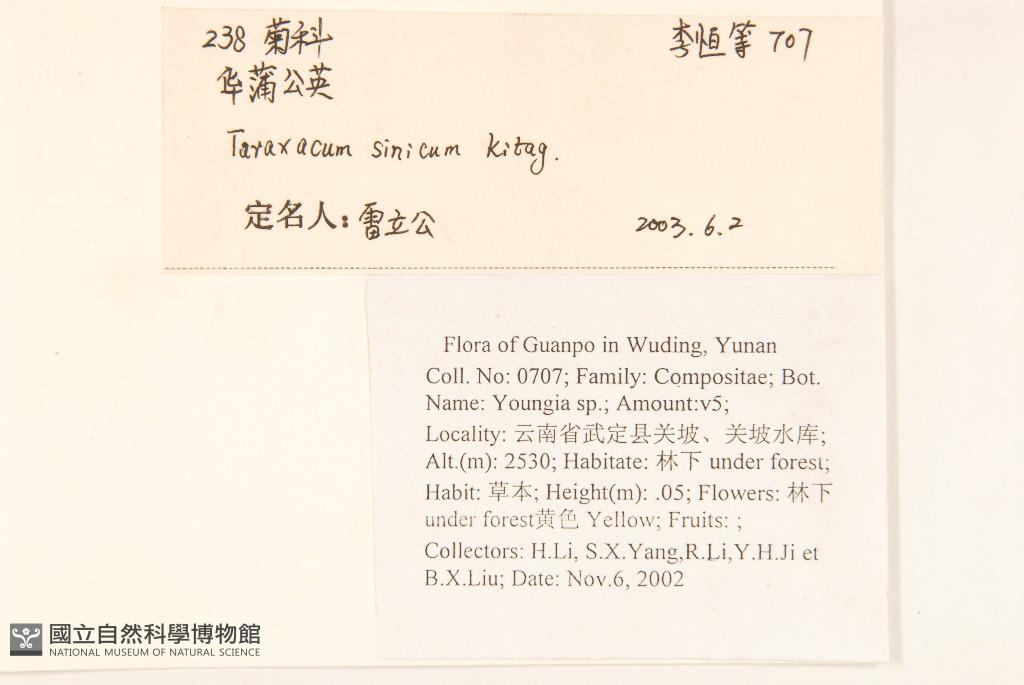 238 菊科
李恒等 707
华蒲公英
Taraxacum sinicum kitag.
定名人：雷立公
2003.6.2
Flora of Guanpo in Wuding, Yunan
Coll. No: 0707; Family: Compositae; Bot.
Name: Youngia sp.; Amount:v5;
Locality: 云南省武定县关坡、关坡水库;
Alt.(m): 2530; Habitate: 林下 under forest;
Habit: 草本; Height(m): .05; Flowers: 林下
under forest黄色 Yellow; Fruits: ;
Collectors: H.Li, S.X.Yang,R.Li,Y.H.Ji et
B.X.Liu; Date: Nov.6, 2002
國立自然科學博物館
NATIONAL MUSEUM OF NATURAL SCIENCE